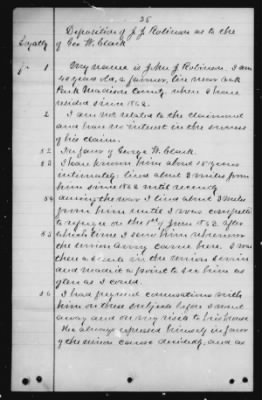 25
Deposition of J. J. Robinson as to the
Loyalty of Geo. W. Clark
1 My name is John J Robinson. I am
40 years old, a farmer, live near
Madison County, where I have
resided since 1862.
2 I am not related to the claimant
and have no interest in the success
of his claim.
52 In favor of George W. Clark.
53 I have known him about 15 years
intimately. lived about 3 miles from
him since 1862 until recently
54 during the war I lived about 3 miles
from him until I was compelled
to refugee on the 1st of June 1863. after
which time I seen him whenever
the union Army came here. I was
then a scout in the union service
and made it a point to see him as
often as I could.
56 I had frequent conversations with
him on these subjects before I went
away and on my visits to his house
He always expressed himself in favor
of the union cause decidedly, and as